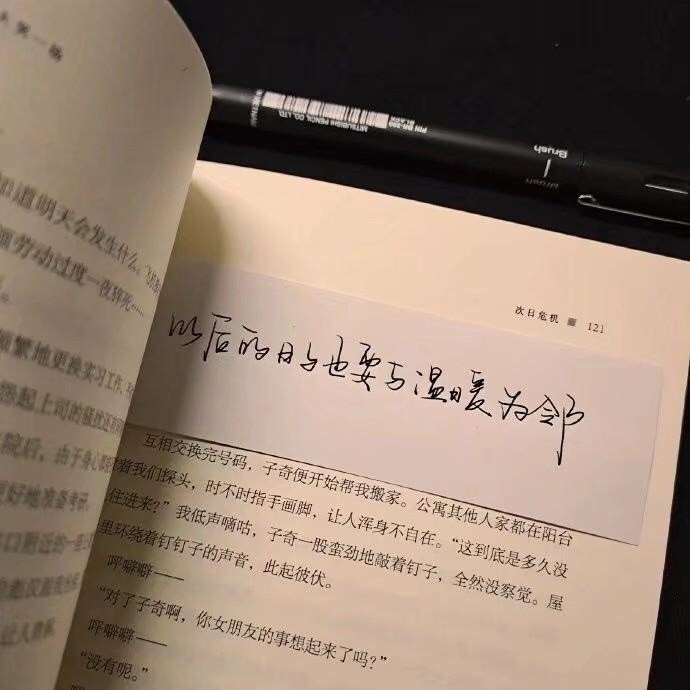 人哭一场
知道明天会发生什么。
劳动过度一夜猝死……
频繁地更换实习工作,
想起上司的骚扰还
院后,由于身心
更好地准备考研。
口附近的一
让人
MITSUBISHI PENCIL CO., LTD.
PIN BR-200
BLACK
Brush
次日危机 ■ 121
以后的日子也要与温暖为邻
互相交换完号码,子奇便开始帮我搬家。公寓其他人家都在阳台
着我们探头,时不时指手画脚,让人浑身不自在。“这到底是多久没
住进来?”我低声嘀咕,子奇一股蛮劲地敲着钉子,全然没察觉。屋
里环绕着钉钉子的声音,此起彼伏。
呯噼噼——
“对了子奇啊,你女朋友的事想起来了吗?”
呯噼噼——
“没有呢。”